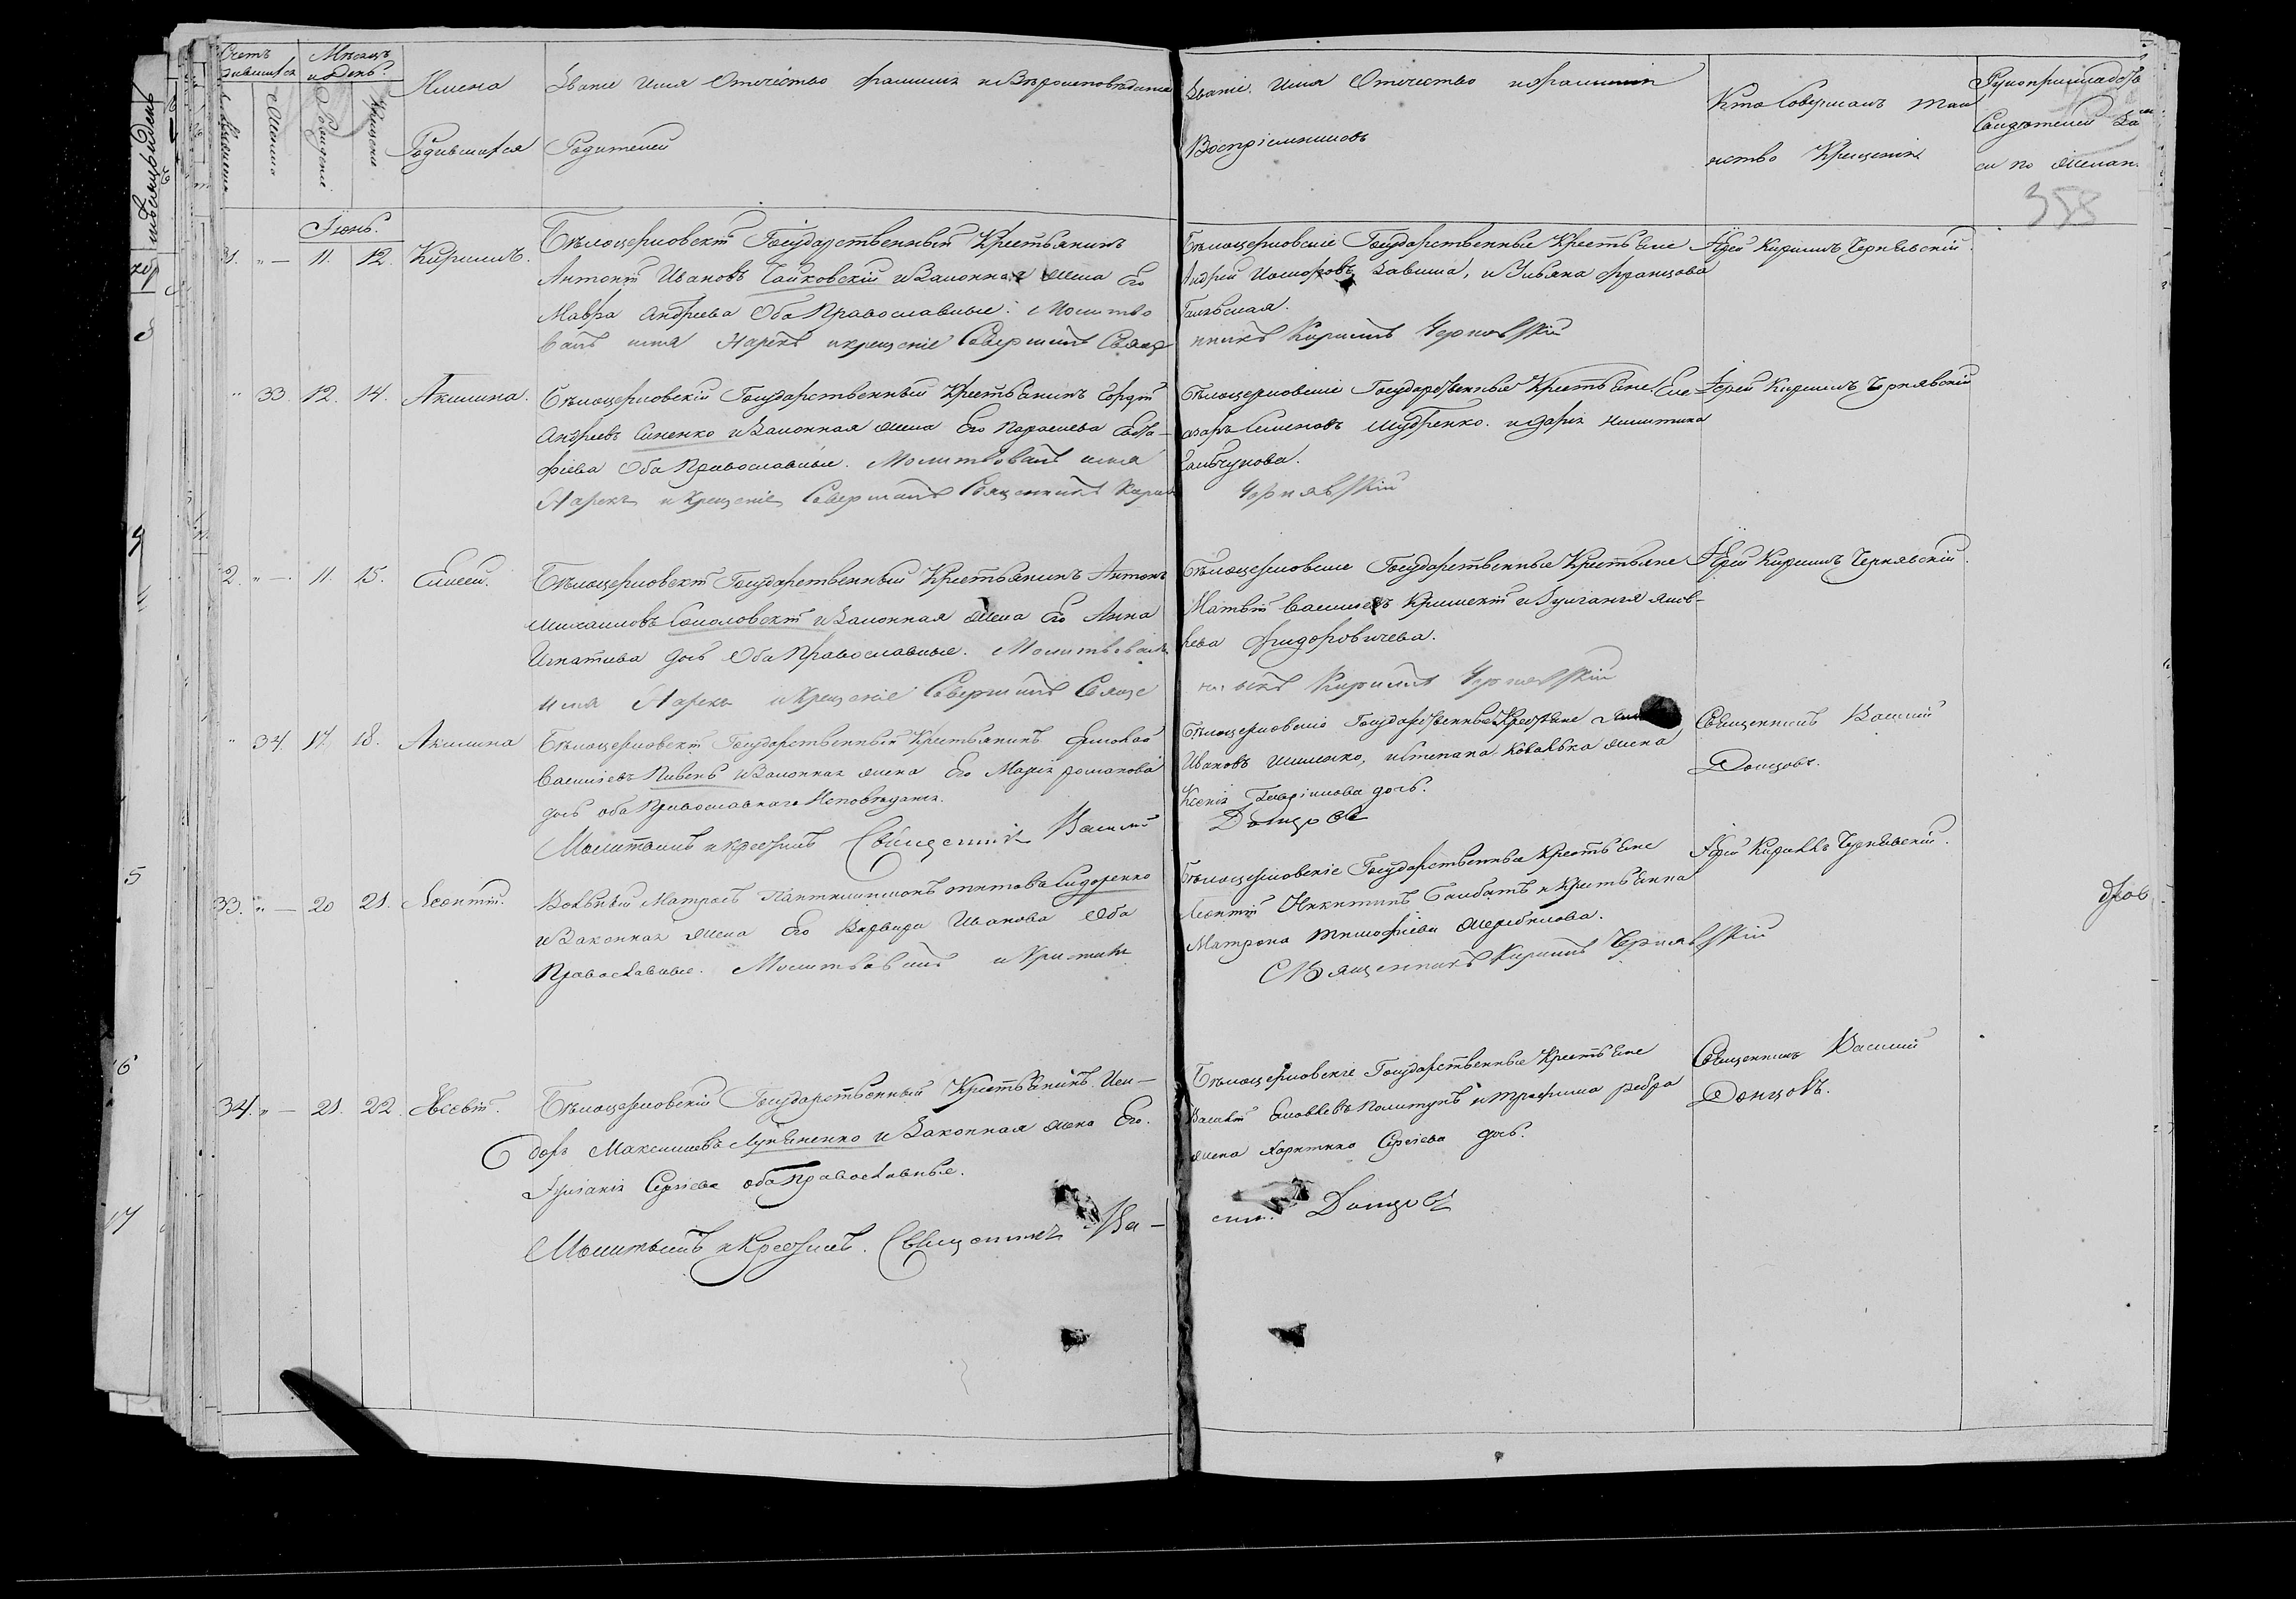 Счетъ родившихся
Мѣсяцъ и день.
Мужеска
Женска
Рожденія
Крещенія
Имена
Родившихся
Званіе Имя Отчество фамилія и Вѣроисповѣданіе
Родителей
Званіе Имя Отчество и фамилія
Воспріемниковъ
Кто Совершалъ Таин
ство Крещенія
Рукоприкладств
Свидѣтелей За
си по желан.
358
Іюнь.
31. " — 11. 12. Кириллъ.
Бѣлоцерковскій Государственный Крестьянинъ
Антоній Ивановъ Чайковскій и Законная жена Его
Мавра Андреева Оба Православные. Молитво
валъ имя Нарекъ и крещеніе Совершилъ Свяще
Бѣлоцерковскіе Государственные Крестьяне
Андрей Завиша, и Ульяна францова
нникъ Кириллъ Чернявскій
Іерей Кириллъ Чернявскій.
" 33. 12. 14. Акилина.
Бѣлоцерковскій Государственный Крестьянинъ Гордій
Андреевъ Синенко и Законная жена Его Параскева Евста-
фіева Оба Православные. Молитвовалъ имя
Нарекъ и Крещеніе Совершилъ Священникъ Кирил
Бѣлоцерковскіе Государственные Крестьяне Еле-
азаръ Семеновъ Мудренко. и Дарія Никитина
Чернявскій
Іерей Кириллъ Чернявскій
2. " — 11. 15. Елисей.
Бѣлоцерковскій Государственный Крестьянинъ Антонъ
Михаиловъ Соколовскій и Законная жена Его Анна
Игнатіева дочь Оба Православные. Молитвовалъ
имя Нарекъ и Крещеніе Совершилъ Свяще
Бѣлоцерковскіе Государственные Крестьяне
Матвій Василіевъ и Лукіанія Яков-
лева Фидоровичева.
нникъ Кириллъ Чернявскій
Іерей Кириллъ Чернявскій.
" 34. 17. 18. Акилина
Бѣлоцерковскій Государственный Крестьянинъ Ермолай
Василіевъ Пивень и Законная жена Его Марія Романова
дочь оба Православнаго Исповѣданія.
Молитвилъ и крестилъ Священникъ Василій
Бѣлоцерковскіе Государственные Крестьяне
Ивановъ и Степана Ковалька жена
Ксенія Гавріилова дочь.
Донцовъ
Священникъ Василій
Донцовъ.
33. " — 20 21. Леонтій.
Вольный Матросъ Пантилимонъ Титовъ Сидоренко
и Законная жена Его Варвара Иванова Оба
Православные. Молитвовалъ и Кристилъ
Бѣлоцерковскіе Государственные Крестьяне
Леонтій Никитинъ и Крестьянка
Матрона Тимофіева Жеребилова.
Священникъ Кириллъ Чернявскій
Іерей Кириллъ Чернявскій.
34. " — 21. 22. Евсевій.
Бѣлоцерковскій Государственный Крестьянинъ Иси-
доръ Максимовъ Лукьяненко и Законная жена Его.
Лукіанія Сергіева оба Православные.
Молитвилъ и Крестилъ. Священникъ Ва-
Бѣлоцерковскіе Государственные Крестьяне
Василій Яковлевъ Политунъ и Трофима ребра
жена Харитина Сергіева дочь.
силій Донцовъ
Священникъ Василій
Донцовъ.